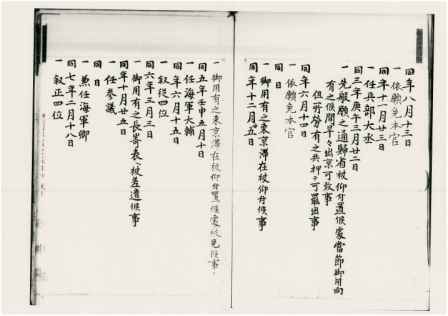 同年八月十三日
一依願免本官
同年十一月廿三日
一任兵部大丞
同三年庚午三月廿二日
一先般願之通歸省被仰付置候處當節御用向
有之候間早々出京可致事
但所勞有之共押而可罷出事
同年六月十四日
一依願免本官
同日
一御用有之東京滞在被仰付候事
同年十二月五日
一御用有之東京滞在被仰付置候處被免候事
同五年壬申五月十日
一任海軍大輔
同年六月十五日
一叙從四位
同六年三月三日
一御用有之長崎表被差遣候事
同年十月廿五日
一任参議
同日
一兼任海軍卿
同七年二月十八日
一叙正四位